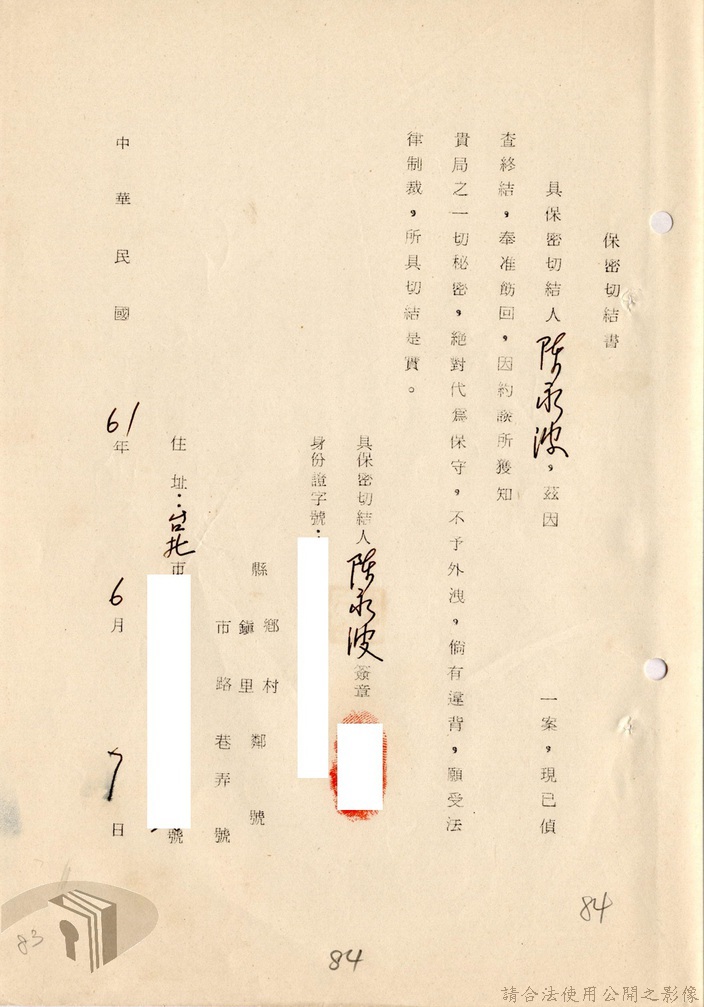 保密切結書
具保密切結人陳永波，茲因　　　一案，現已偵
查終結，奉准飭回，因約談所獲知
貴局之一切秘密，絕對代為保守，不予外洩，倘有違背，願受法
律制裁，所具切結是實。
具保密切結人陳永波簽章
身份證字號：
縣　鄉　村　鄰　號
鎮　里
市　路　巷　弄　號
住址：台北市　號
中華民國61年6月7日
84
84
83
請合法使用公開之影像